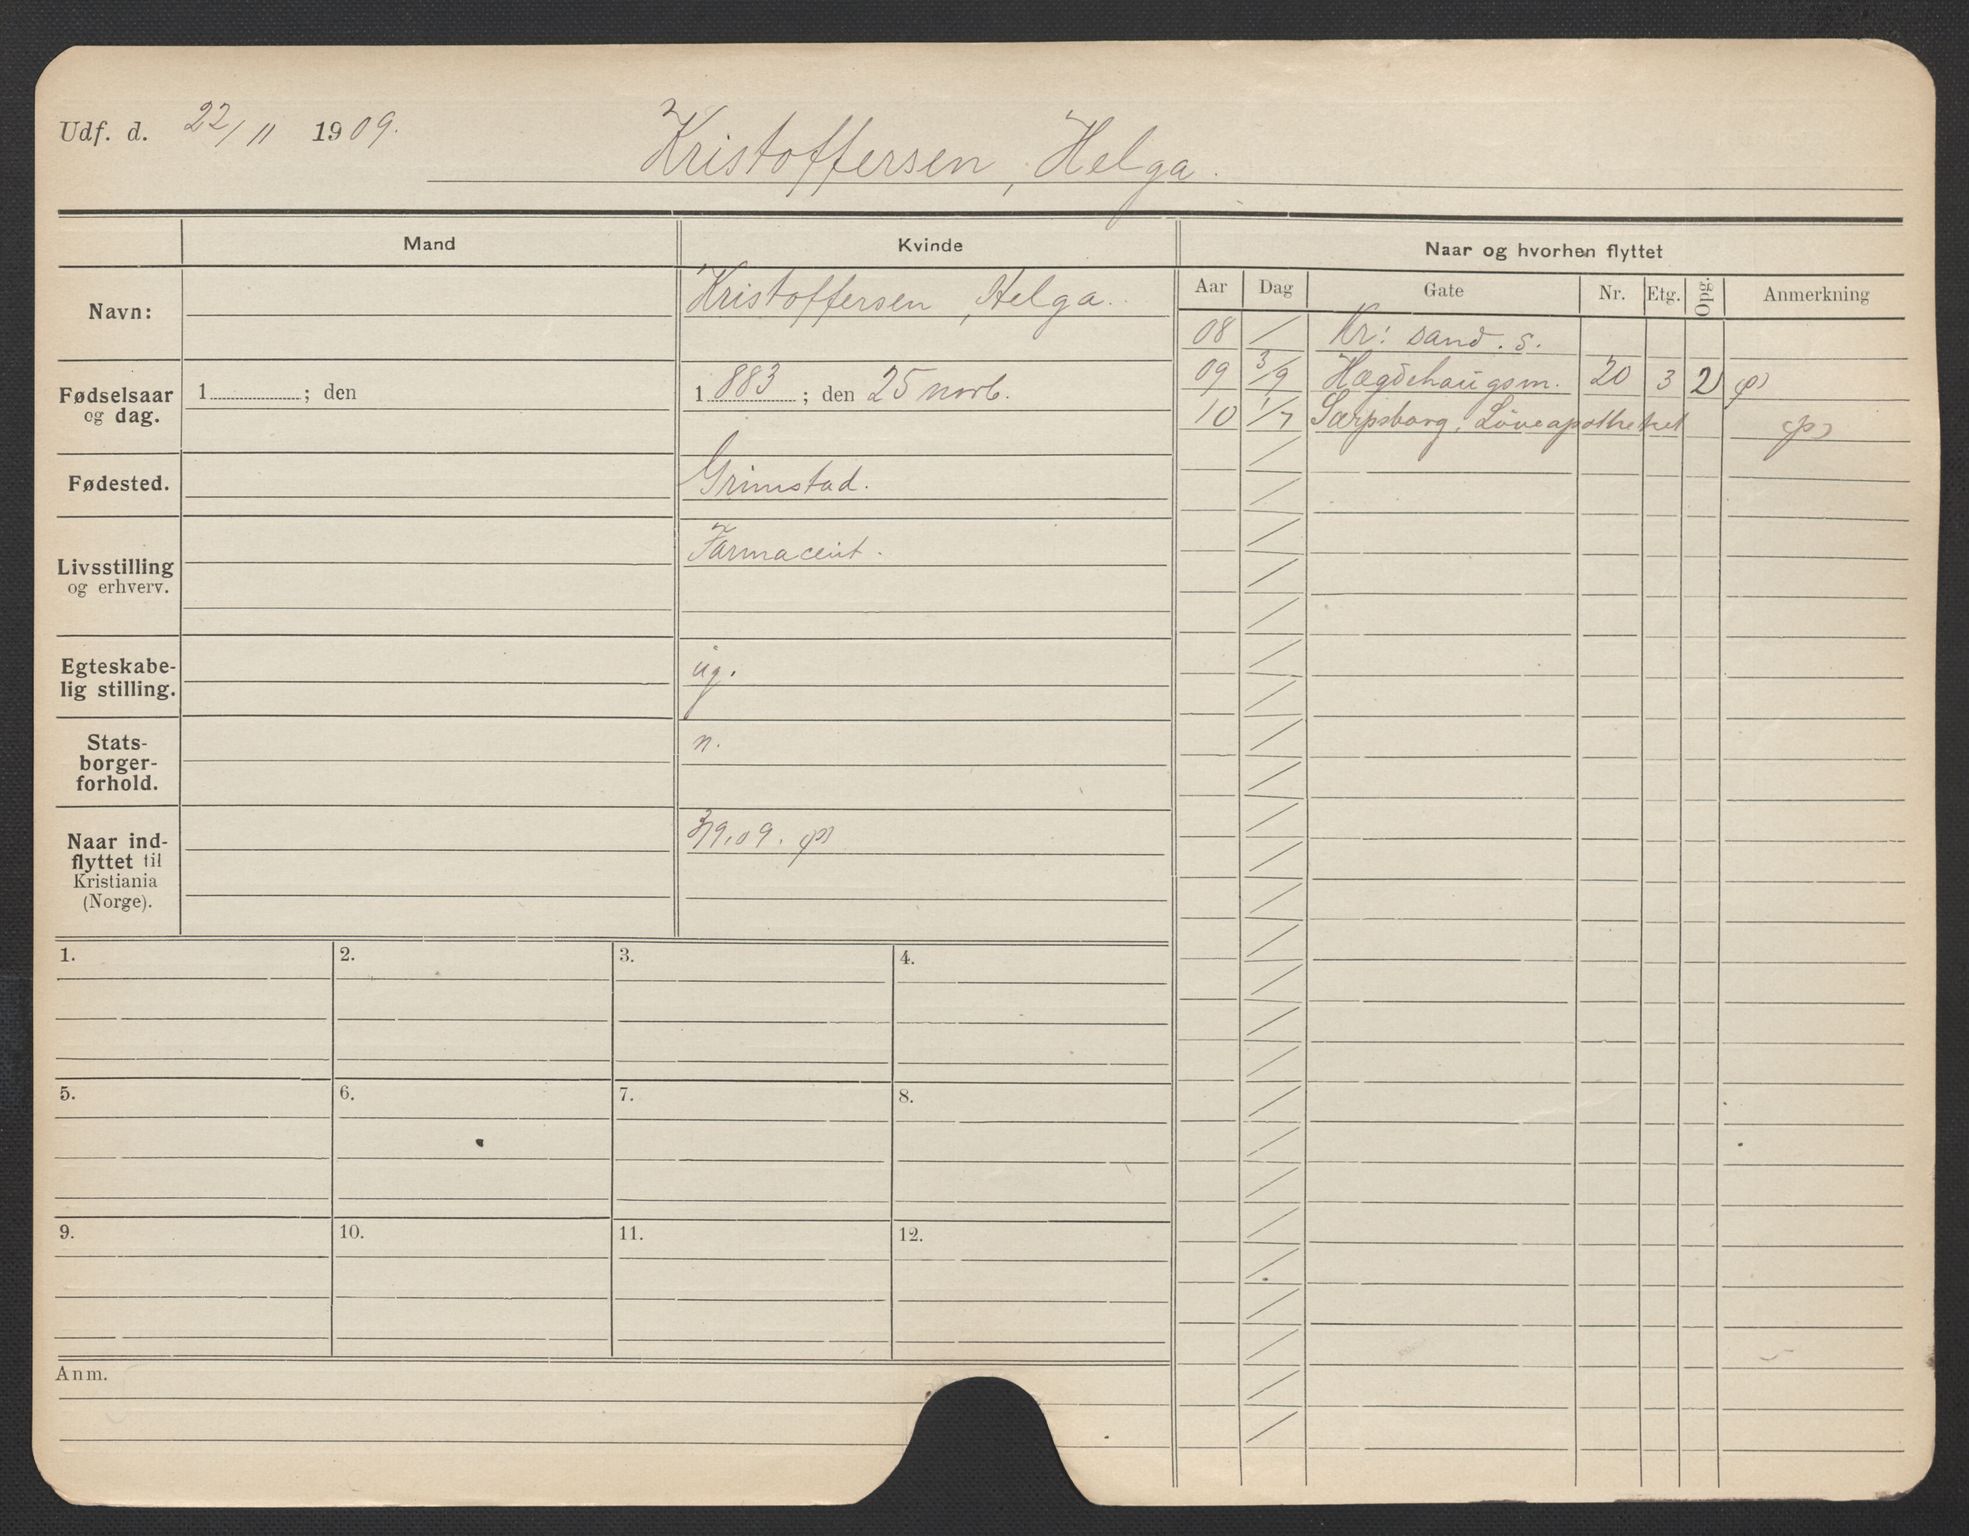 Udf. d. 22/11 1909.
Kristoffersen, Helga.
Mand
Kvinde
Naar og hvorhen flyttet
Navn:
Kristoffersen, Helga.
Aar Dag Gate Nr. Etg. Opg. Anmerkning
08 / Kr: sand. s.
09 3/9 Hægdehaugsm. 20 3 2 (p)
10 1/7 Sarpsborg, Löveapotheket (p)
Fødselsaar
og dag.
1 ; den
1883 ; den 25 novb.
Fødested.
Grimstad.
Livsstilling
og erhverv.
Farmaceut.
Egteskabe-
lig stilling.
ug.
Stats-
borger-
forhold.
n.
Naar ind-
flyttet til
Kristiania
(Norge).
3/9.09. (p)
1. 2. 3. 4.
5. 6. 7. 8.
9. 10. 11. 12.
Anm.